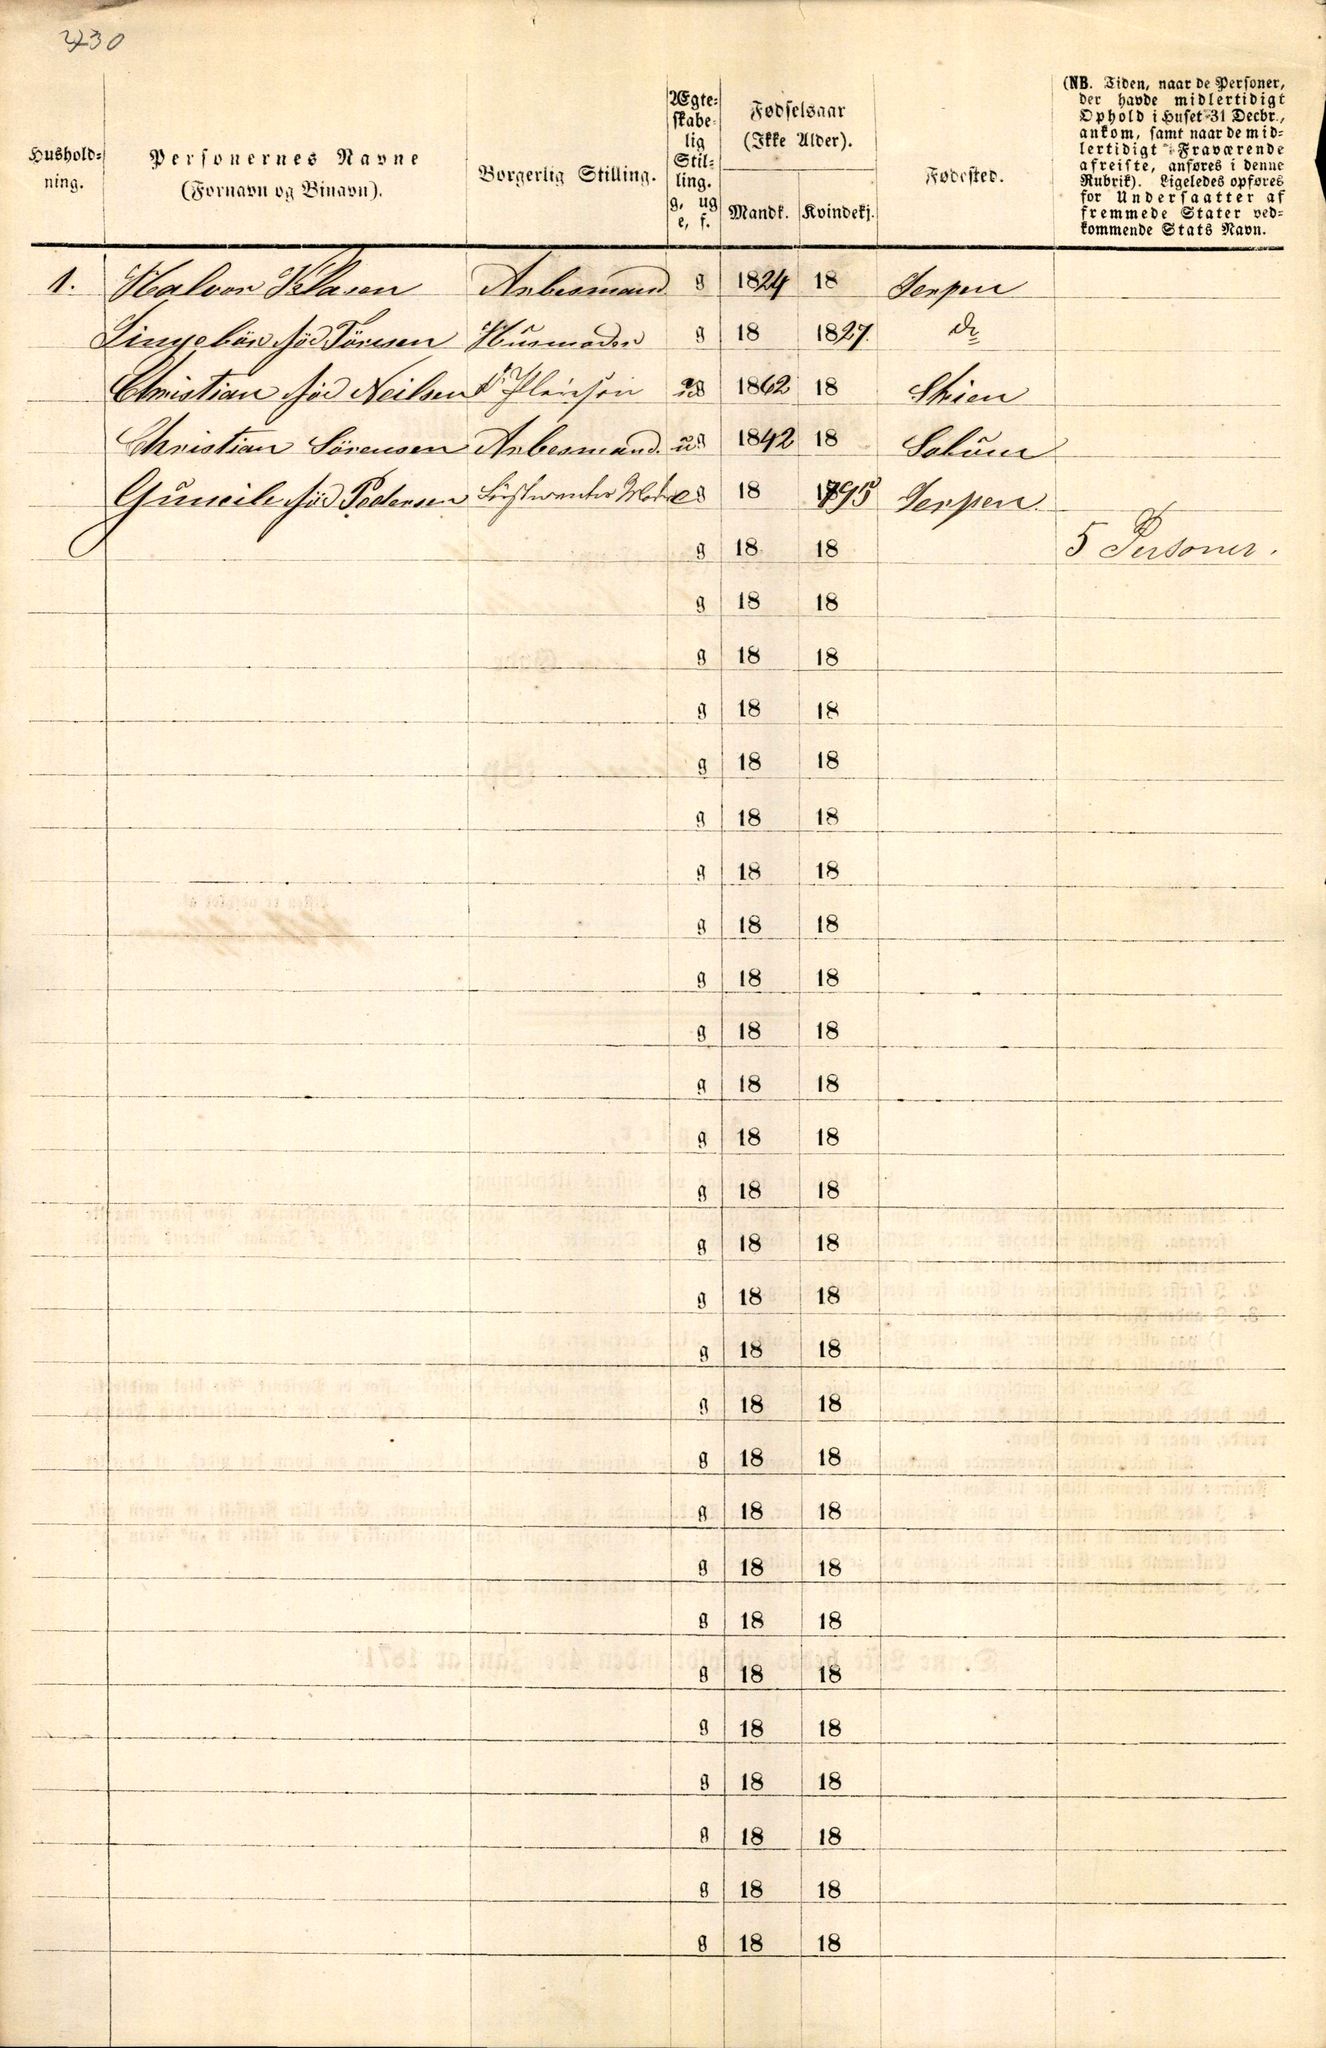 230
Hushold-
ning.
Personernes Navne
(Fornavn og Binavn).
Borgerlig Stilling.
Ægte-
skabe-
lig
Stil-
ling.
g, ug
e, f.
Fødselsaar
(Ikke Alder).
Mandk. Kvindekj.
Fødested.
(NB. Tiden, naar de Personer,
der havde midlertidigt
Ophold i Huset 31 Decbr.,
ankom, samt naar de mid-
lertidigt Fraværende
afreiste, anføres i denne
Rubrik). Ligeledes opføres
for Undersaatter af
fremmede Stater ved-
kommende Stats Navn.
1. Halvor Klasen Arbesmand g 1824 18 Jerpen
Jingebör föd Törresen Husmoder g 18 1827. do
Christian föd Neilsen Pleiesön ug 1862 18 Skien
Christian Sörensen Arbesmand. ug 1842 18 Solum
föd Pedersen Moder e g 18 1795 Jerpen.
g 18 18 5 Personer.
g 18 18
g 18 18
g 18 18
g 18 18
g 18 18
g 18 18
g 18 18
g 18 18
g 18 18
g 18 18
g 18 18
g 18 18
g 18 18
g 18 18
g 18 18
g 18 18
g 18 18
g 18 18
g 18 18
g 18 18
g 18 18
g 18 18
g 18 18
g 18 18
g 18 18
g 18 18